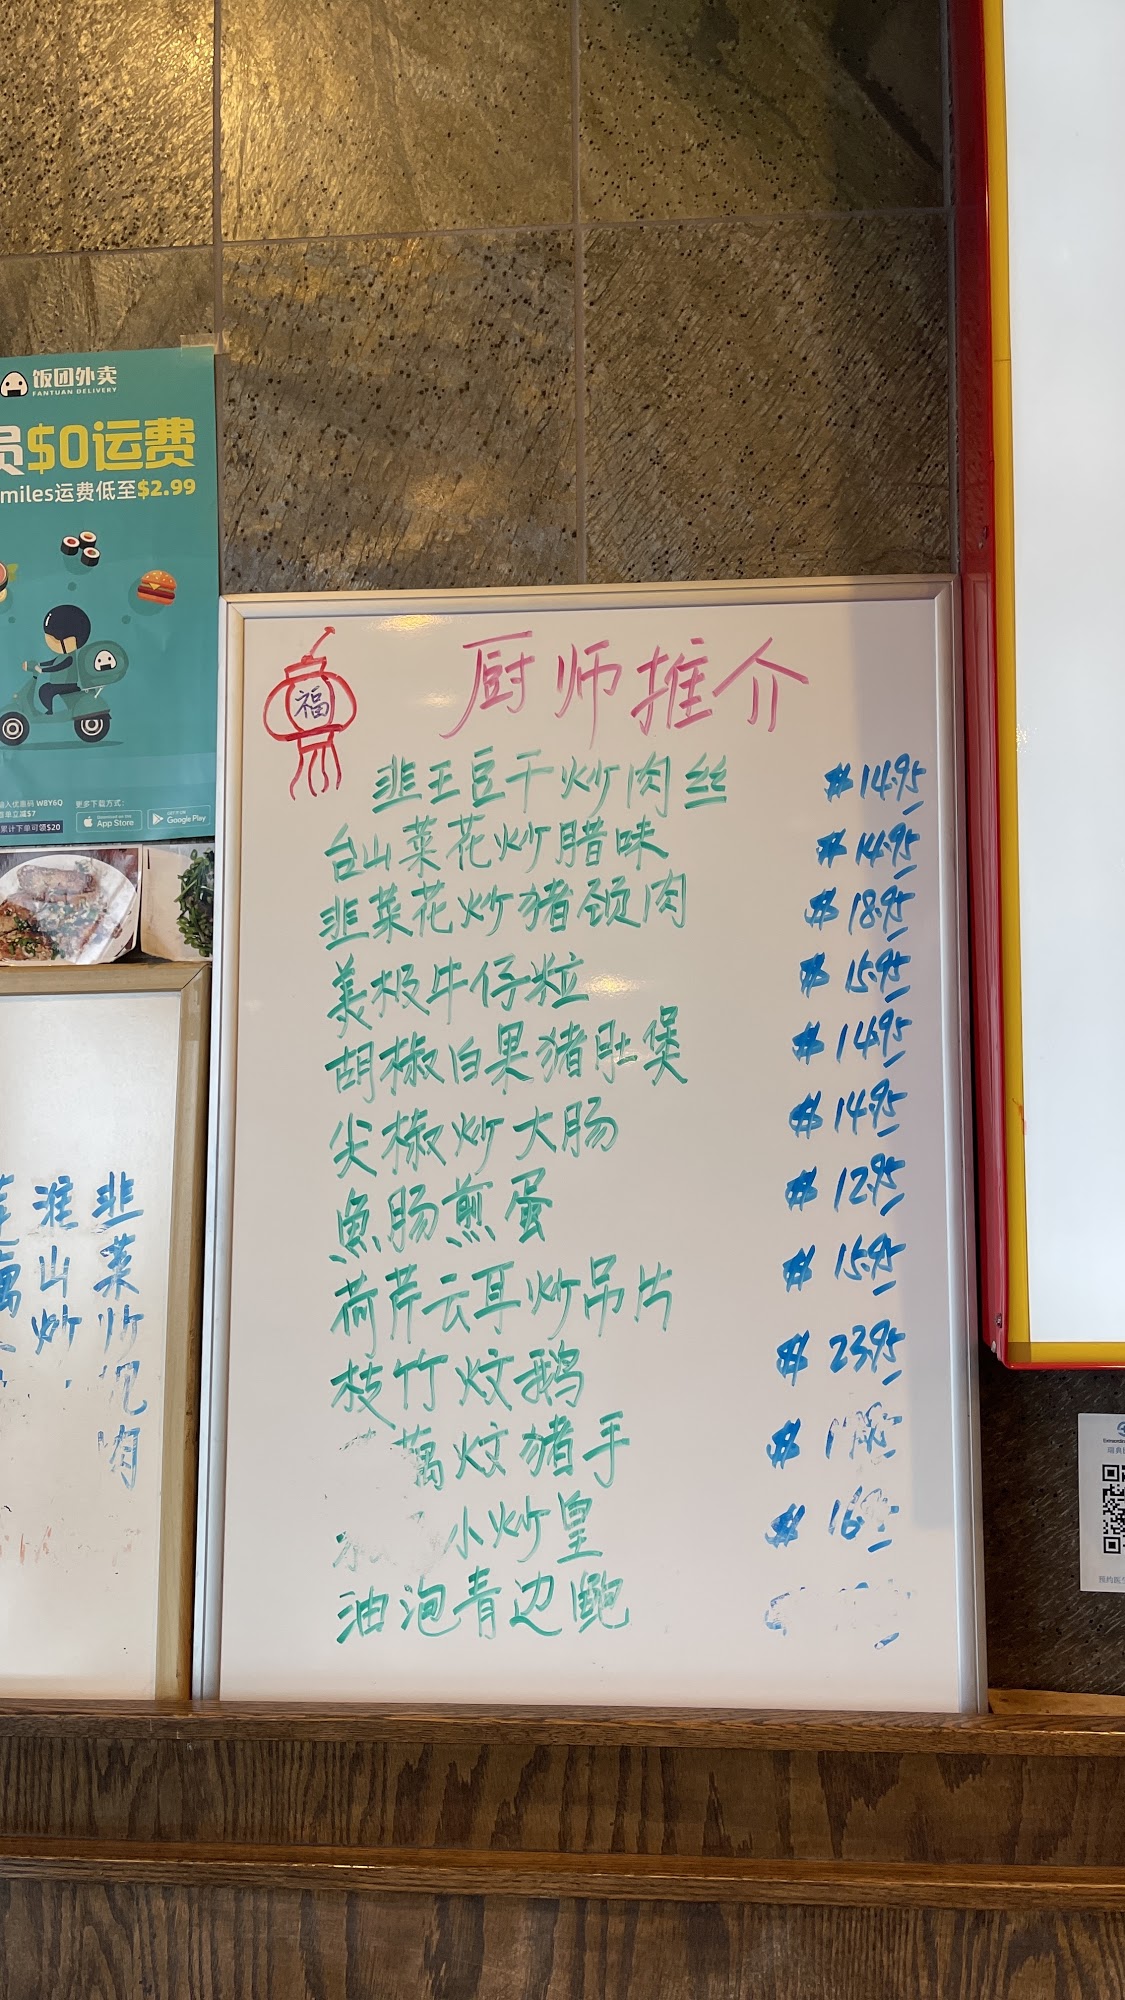 饭团外卖
FANTUAN DELIVERY
员$0运费
miles运费低至$2.99
输入优惠码 W8Y6Q
首单立减$7
累计下单可领$20
更多下载方式：
Download on the App Store
GET IT ON Google Play
福
厨师推介
韭王豆干炒肉丝 $14.95
台山菜花炒腊味 $14.95
韭菜花炒猪颈肉 $18.95
美极牛仔粒 $15.95
胡椒白果猪肚煲 $14.95
尖椒炒大肠 $14.95
魚肠煎蛋 $12.95
荷芹云耳炒吊片 $15.95
枝竹炆鹅 $23.95
藕炆猪手 $1
小炒皇 $16
油泡青边鲍
韭菜炒
肉
淮山炒